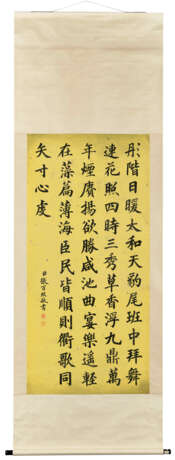 彤階日暖太和天豹尾班中拜舞
連花照四時三秀草香浮九鼎萬
年煙賡揚欲勝咸池曲宴樂遥輕
在藻篇薄海臣民皆順則衢歌同
矢寸心虔
臣張百熙敬書